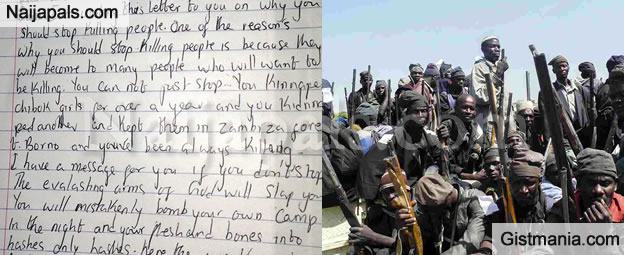 Naijapals.com
this Letter to you on why you
should stop killing people. One of the reasons
why you should stop killing people is because they
will become to many people who will want to
be killing. You can not just stop. You
chibok girls for over a year and you kidna
pped another and kept them in Zambiza fore
t. Borno and you've been always killing
I have a message for you if you don't stop
The evalasting aims of God will slap you
You will mistakenly bomb your own Camp
In the night and your flesh and bones into
hashes only hashes. Here the
Gistmania.com